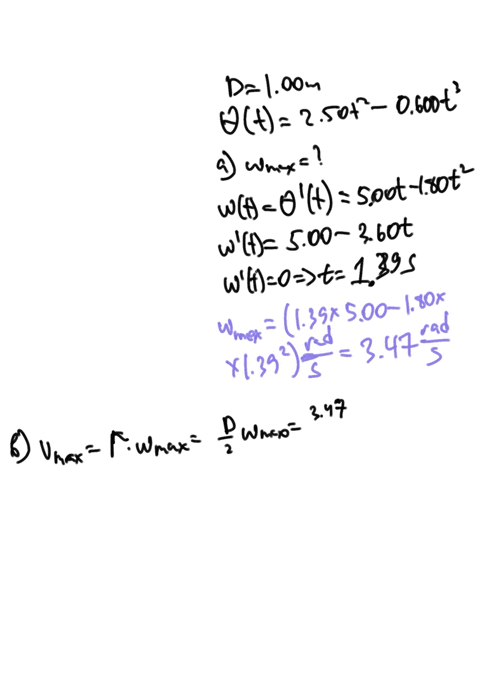 D=1.00m
θ(t)=2.50t²-0.600t³
a) ωmax=?
ω(t)=θ'(t)=5.00t-1.80t²
ω'(t)=5.00-3.60t
ω'(t)=0=>t=1.39s
ωmax=(1.39×5.00-1.80×
×1.39²)rad/s=3.47rad/s
b) Vmax=r·ωmax=D/2 ωmax=3.47